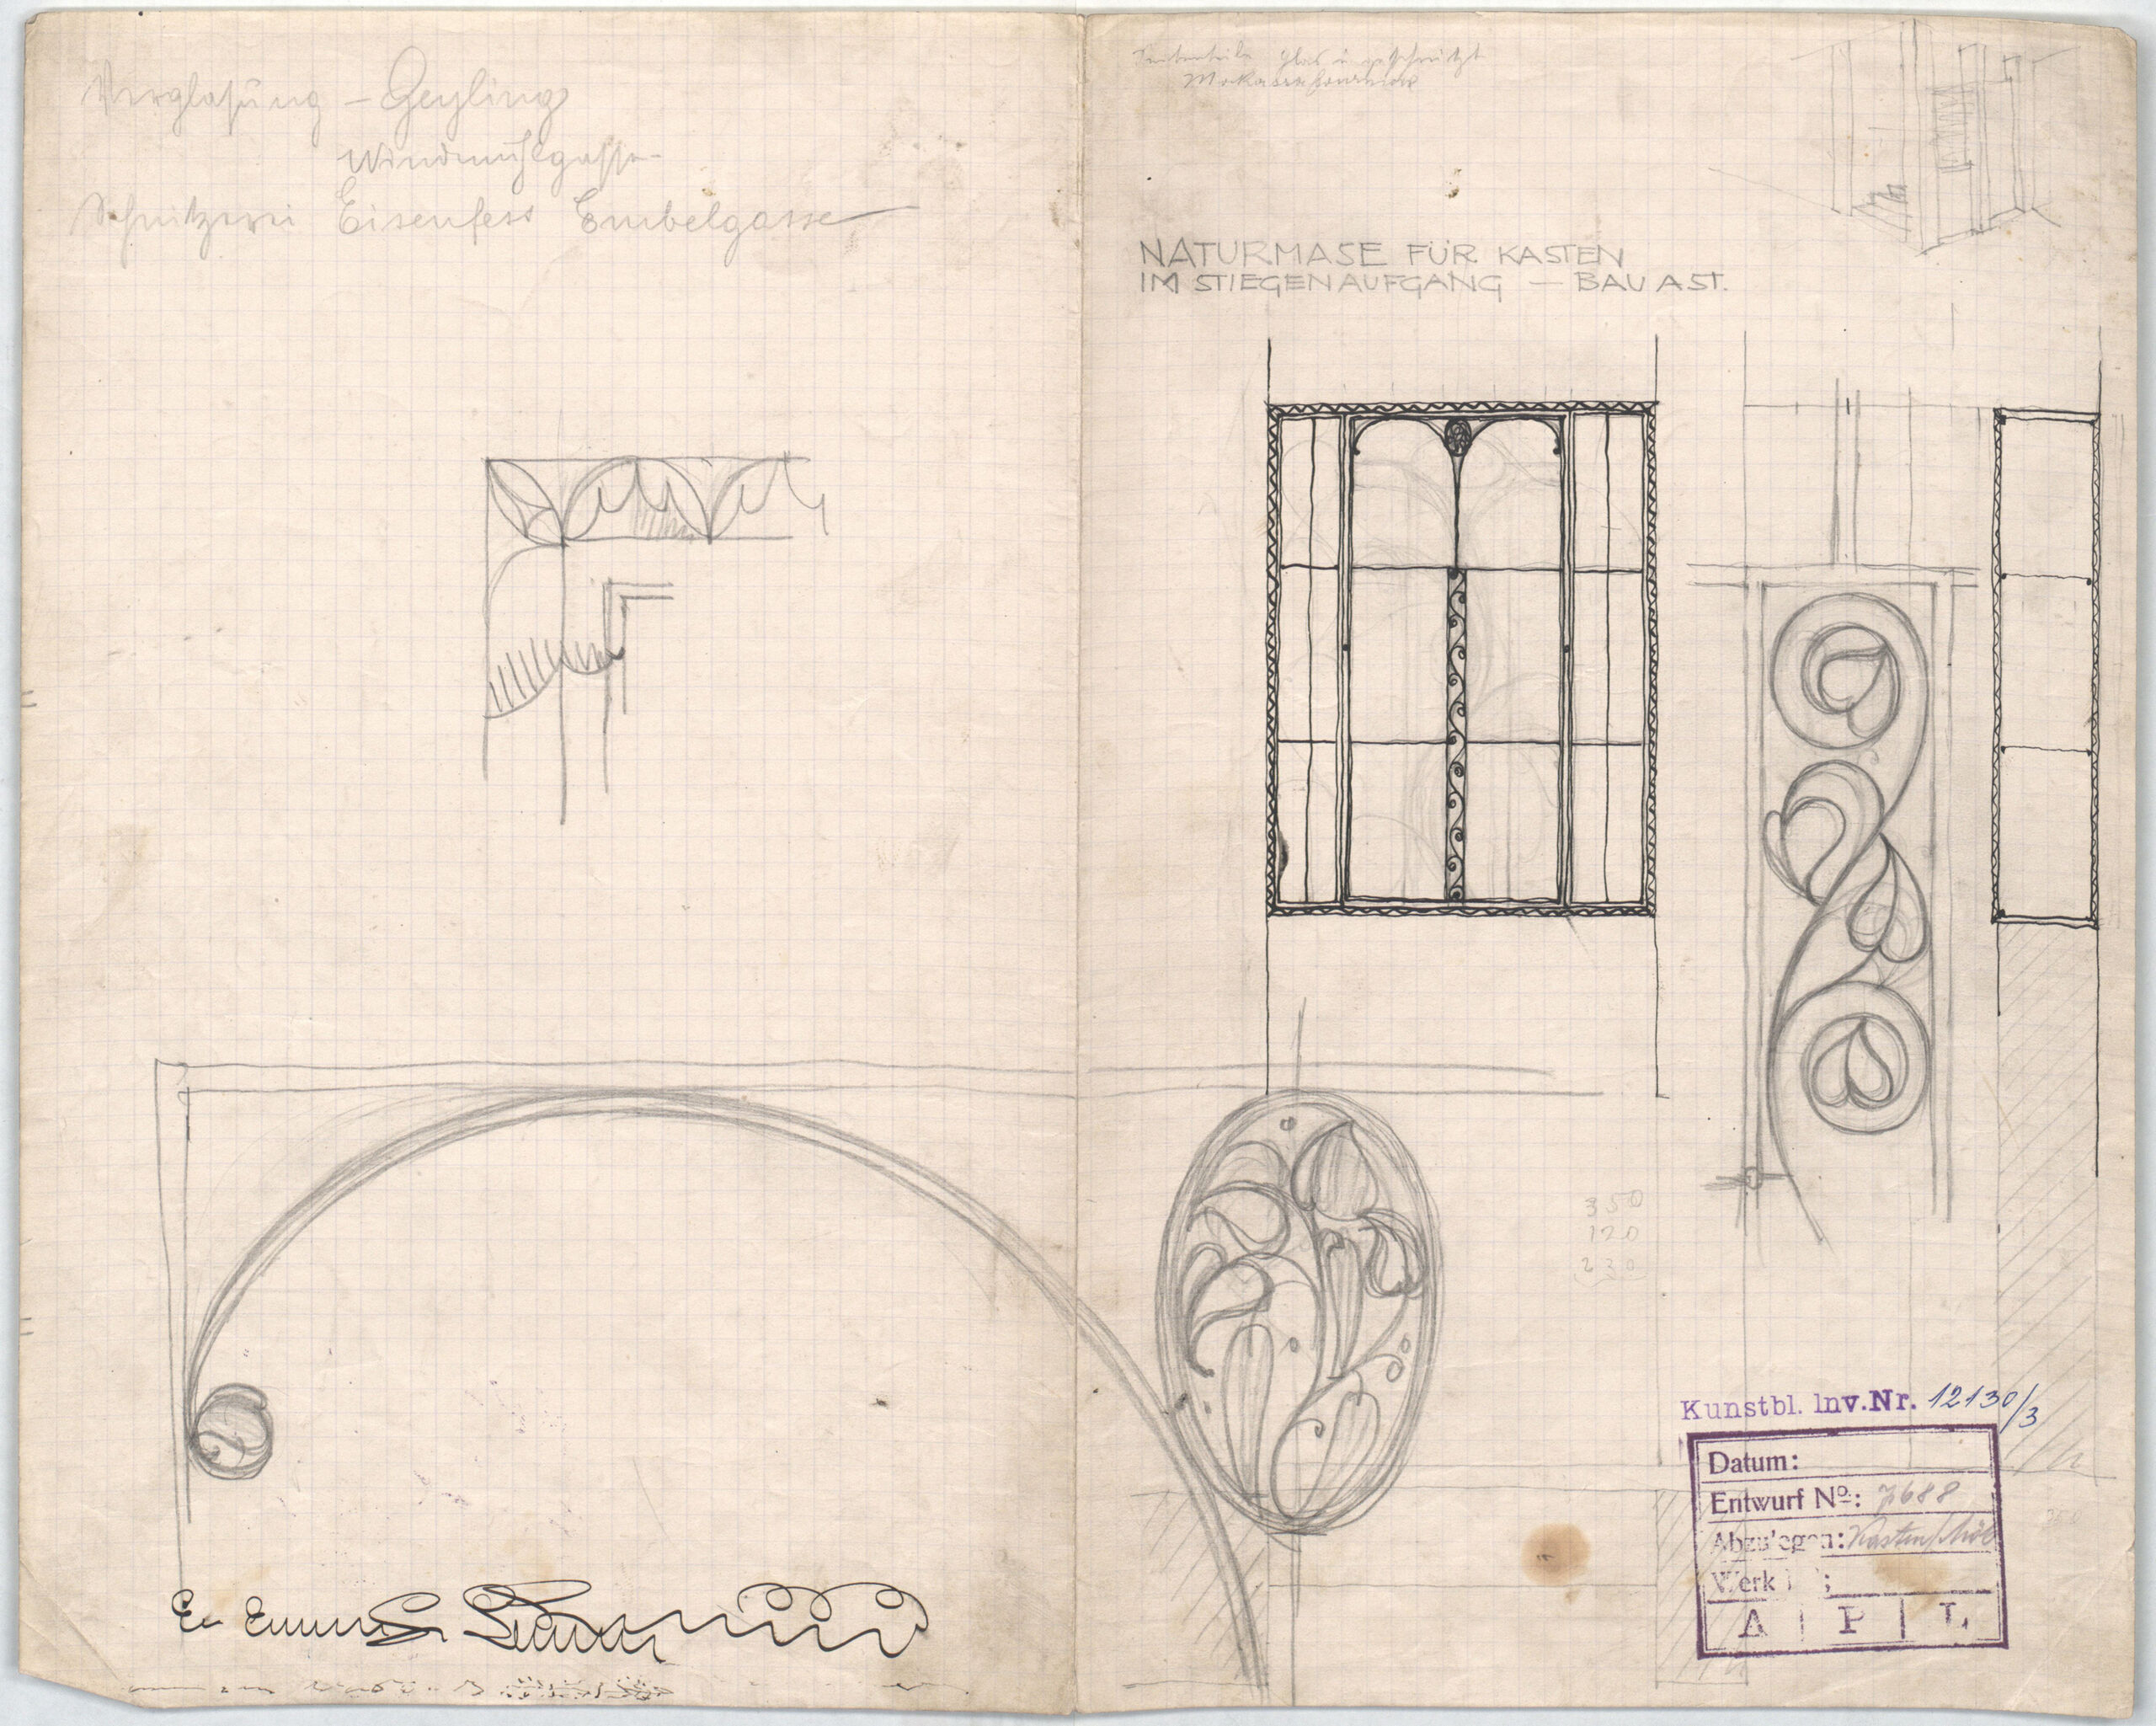 Verglasung – Geyling
Windmühlgasse
Schnitzerei Eisenfess Embelgasse
Seitenteile Glas u geschnitzt
NATURMASE FÜR KASTEN
IM STIEGENAUFGANG — BAU AST.
350
120
230
Kunstbl. Inv.Nr. 12130/3
Datum:
Entwurf No.: 7688
Abzulegen: Kasten
Werk
A | P | L